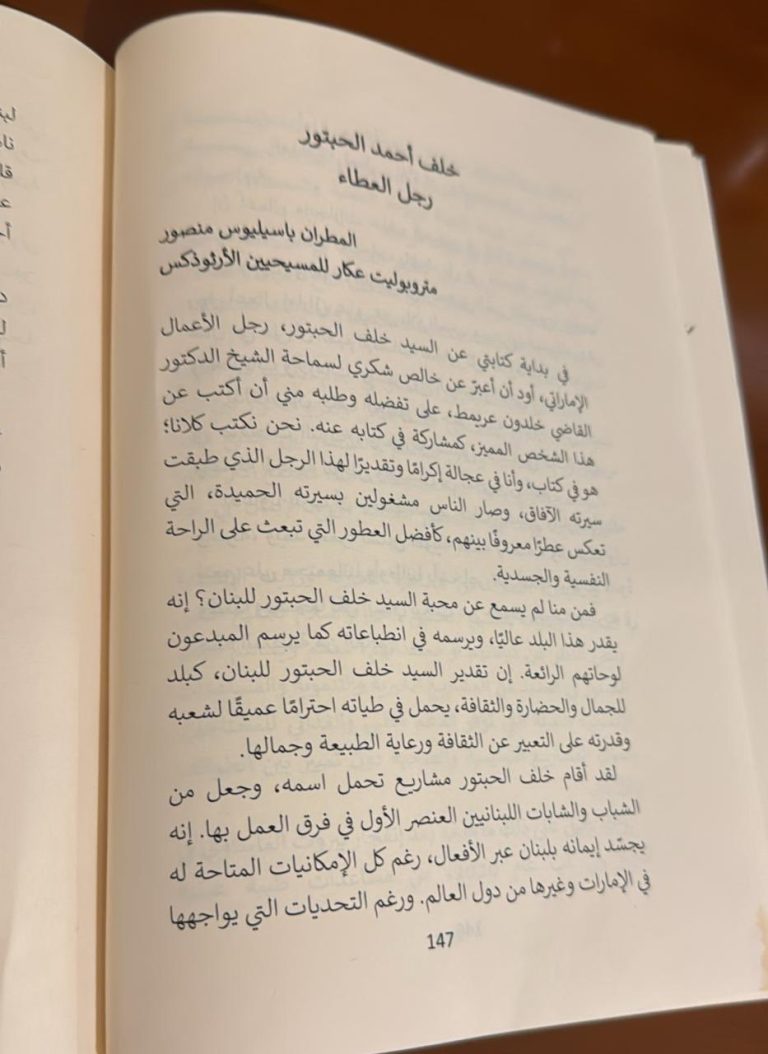 خلف أحمد الحبتور
رجل العطاء
المطران باسيليوس منصور
متروبوليت عكار للمسيحيين الأرثوذكس
في بداية كتابتي عن السيد خلف الحبتور، رجل الأعمال
الإماراتي، أود أن أعبّر عن خالص شكري لسماحة الشيخ الدكتور
القاضي خلدون عريمط، على تفضله وطلبه مني أن أكتب عن
هذا الشخص المميز، كمشاركة في كتابه عنه. نحن نكتب كلانا؛
هو في كتاب، وأنا في عجالة إكرامًا وتقديرًا لهذا الرجل الذي طبقت
سيرته الآفاق، وصار الناس مشغولين بسيرته الحميدة، التي
تعكس عطرًا معروفًا بينهم، كأفضل العطور التي تبعث على الراحة
النفسية والجسدية.
فمن منا لم يسمع عن محبة السيد خلف الحبتور للبنان؟ إنه
يقدر هذا البلد عاليًا، ويرسمه في انطباعاته كما يرسم المبدعون
لوحاتهم الرائعة. إن تقدير السيد خلف الحبتور للبنان، كبلد
للجمال والحضارة والثقافة، يحمل في طياته احترامًا عميقًا لشعبه
وقدرته على التعبير عن الثقافة ورعاية الطبيعة وجمالها.
لقد أقام خلف الحبتور مشاريع تحمل اسمه، وجعل من
الشباب والشابات اللبنانيين العنصر الأول في فرق العمل بها. إنه
يجسّد إيمانه بلبنان عبر الأفعال، رغم كل الإمكانيات المتاحة له
في الإمارات وغيرها من دول العالم. ورغم التحديات التي يواجهها
147